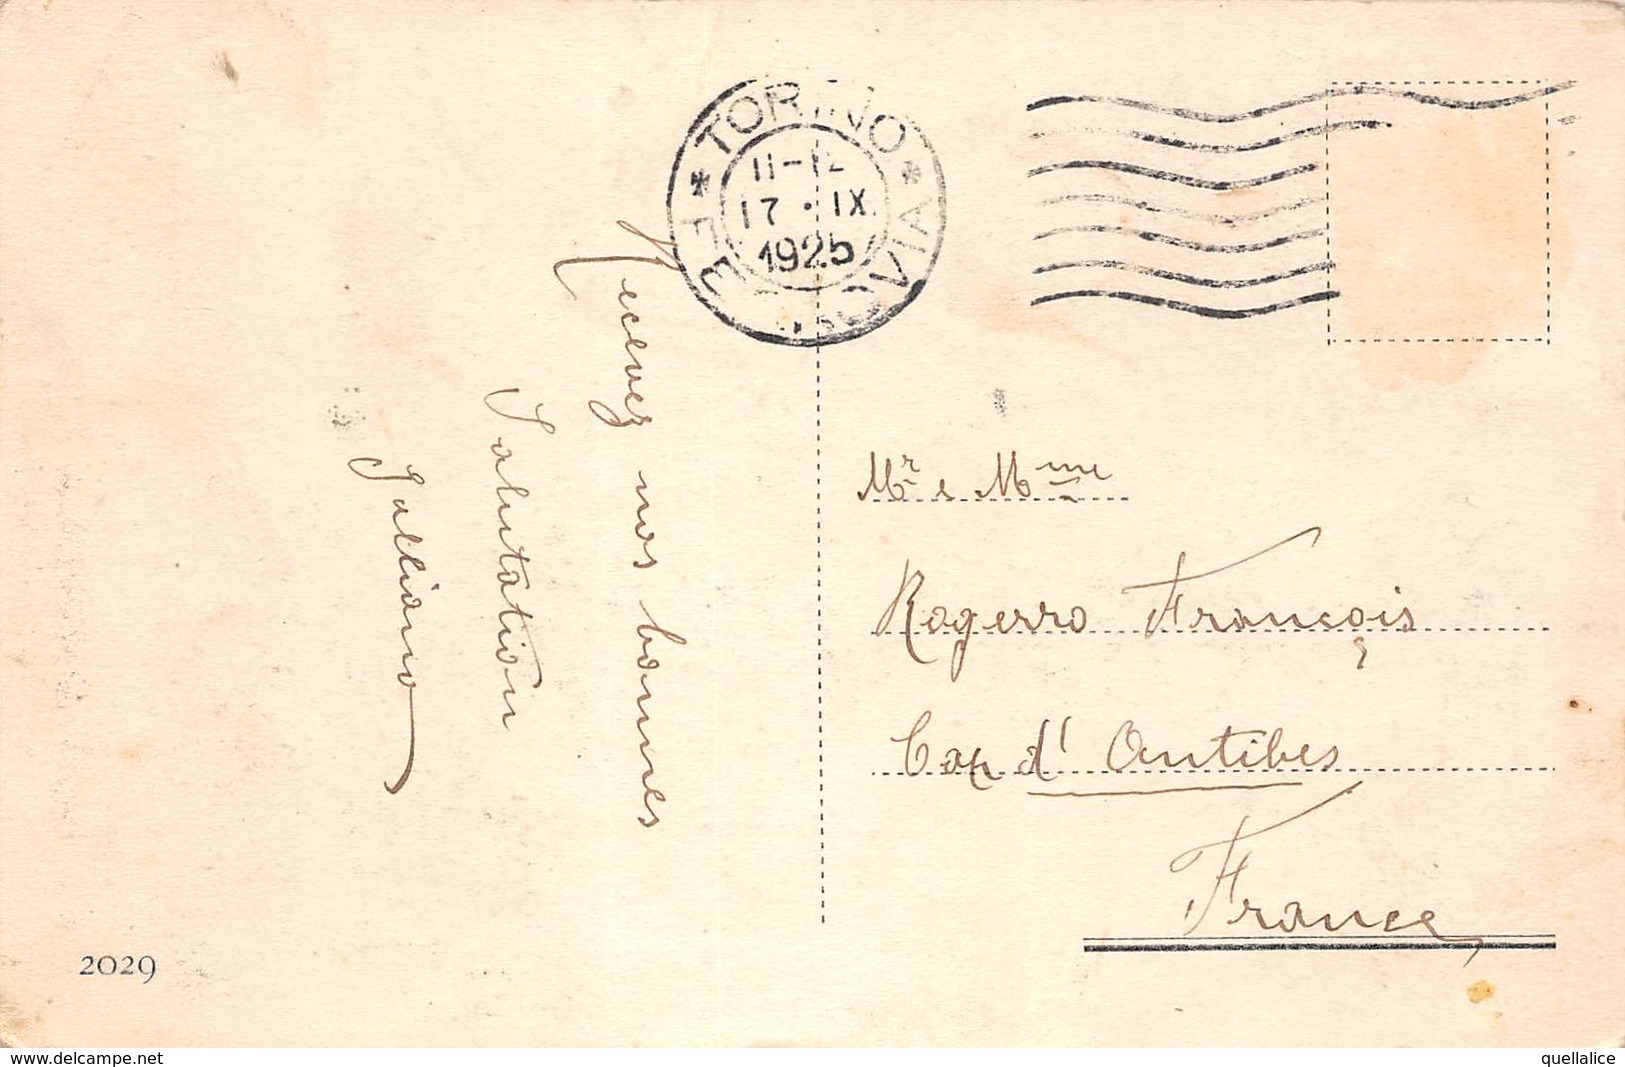 * TORINO *
FERROVIA
11-12
17 · IX
1925
Recevez nos bonnes
Salutation
Galliano
Mr e Mme
Rogerro François
Cap d'Antibes
France
2029
www.delcampe.net
quellalice